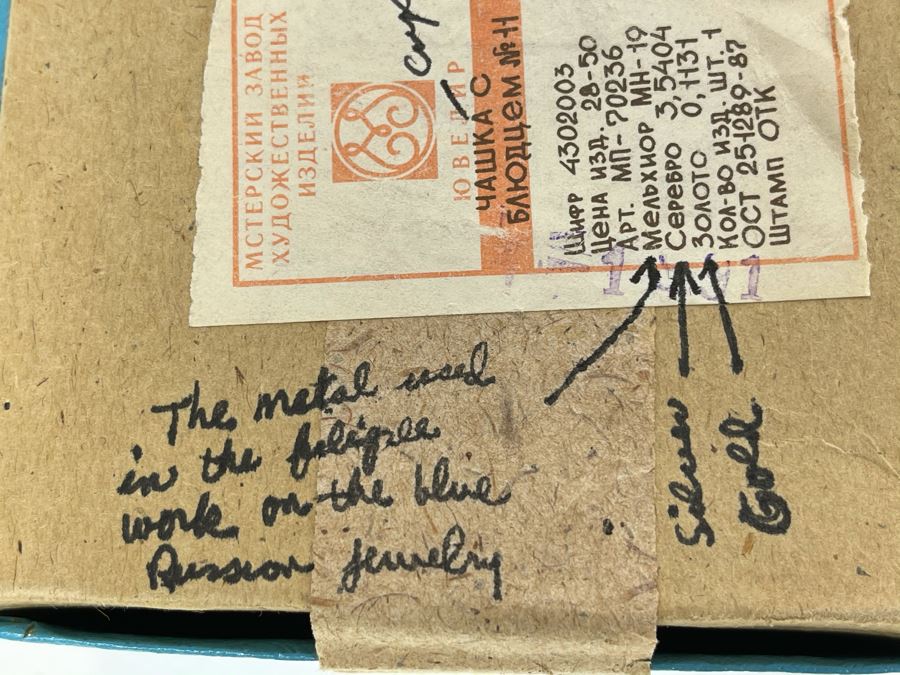 МСТЕРСКИЙ ЗАВОД
ХУДОЖЕСТВЕННЫХ
ИЗДЕЛИЙ
ЮВЕЛИР
ЧАШКА С
БЛЮДЦЕМ №-11
Шифр 4302003
Цена изд. 28-50
Арт. МП-70236
Мельхиор МН-19
Серебро 3,5404
Золото 0,1131
Кол-во изд. шт. 1
ОСТ 25-1289-87
ШТАМП ОТК
The metal used
in the filigree
work on the blue
Russion jewelry
Silver
Gold